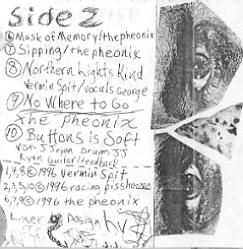 Side 2
⑥ Mask of Memory/the pheonix
⑦ Sipping/the pheonix
⑧ Northern Lights Kind
Vermin Spit/Vocals George
⑨ No Where to Go
the pheonix
⑩ Buttons is Soft
Vox-JJ ryan Drums JJ
Ryan Guitar/feedback
1,4,8,©1996 Vermin Spit
2,3,5,10©1996 racing pisshorses
6,7,9©1996 the pheonix
Liner
Design